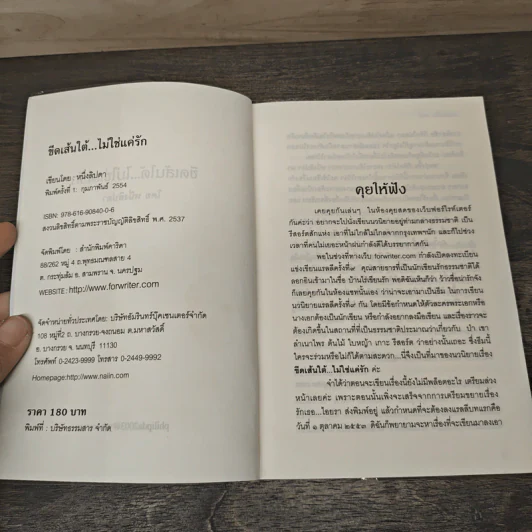 ขีดเส้นใต้...ไม่ใช่แค่รัก
เขียนโดย : หนึ่งสิปดา
พิมพ์ครั้งที่ 1: กุมภาพันธ์ 2554
ISBN: 978-616-90840-0-6
สงวนลิขสิทธิ์ตามพระราชบัญญัติลิขสิทธิ์ พ.ศ. 2537
จัดพิมพ์โดย : สำนักพิมพ์คาริตา
88/262 หมู่ 4 ถ.พุทธมณฑลสาย 4
ต. กระทุ่มล้ม อ. สามพราน จ. นครปฐม
WEBSITE: http://www.forwriter.com
จัดจำหน่ายทั่วประเทศโดย: บริษัทอัมรินทร์บุ๊คเซนเตอร์จำกัด
108 หมู่ที่2 ถ. บางกรวย-จงถนอม ต.มหาสวัสดิ์
อ. บางกรวย จ. นนทบุรี 11130
โทรศัพท์ 0-2423-9999 โทรสาร 0-2449-9992
Homepage:http://www.naiin.com
ราคา 180 บาท
พิมพ์ที่ : บริษัทธรรมสาร จำกัด
คุยให้ฟัง
เคยคุยกันเล่นๆ ในห้องคุยสดของเว็บฟอร์ไรท์เตอร์
กันค่ะว่า อยากจะไปนั่งเขียนนวนิยายอยู่ท่ามกลางธรรมชาติ เป็น
รีสอร์ตสักแห่ง เอาที่ไม่ใกล้ไม่ไกลจากกรุงเทพฯนัก และก็ไปช่วง
เวลาที่คนไม่เยอะหน้าฝนกำลังดีได้บรรยากาศกัน
พอในช่วงที่ทางเว็บ forwriter.com กำลังเปิดลงทะเบียน
แข่งเขียนแรลลี่ครั้งที่๙ คุณสายธารที่เป็นนักเขียนรักธรรมชาติได้
ลอกอินเข้ามาในชื่อ บ้านไร่เขียนรัก พอดิฉันเห็นก็ว่า ว้าวชื่อน่ารักจัง
ก็เลยคุยกันในห้องแชทนั่นเอง ว่าน่าจะเอามาเป็นธีม ในการเขียน
นวนิยายแรลลี่ครั้งที่๙ กัน โดยมีข้อกำหนดให้ตัวละครพระเอกหรือ
นางเอกต้องเป็นนักเขียน หรือกำลังอยากลงมือเขียน และเรื่องราวจะ
ต้องเกิดขึ้นในสถานที่ที่เป็นธรรมชาติประมาณว่าเกี่ยวกับ ป่า เขา
ลำเนาไพร ต้นไม้ ใบหญ้า เกาะ รีสอร์ต ว่าอย่างนั้นเถอะ ซึ่งธีมนี้
ใครจะร่วมหรือไม่ก็ได้ตามสะดวก...นี่จึงเป็นที่มาของนวนิยายเรื่อง
ขีดเส้นใต้...ไม่ใช่แค่รัก ค่ะ
จำได้ว่าตอนจะเขียนเรื่องนี้ยังไม่มีพล็อตอะไร เตรียมล่วง
หน้าเลยค่ะ เพราะตอนนั้นเพิ่งจะเสร็จจากการเตรียมขยายเรื่อง
รักเธอ...ไอยรา ส่งพิมพ์อยู่ แล้วกำหนดที่จะต้องลงแรลลี่บทแรกคือ
วันที่ ๑ ตุลาคม ๒๕๕๓ ดิฉันก็พยายามจะหาเรื่องที่จะเขียนมาลงเอา